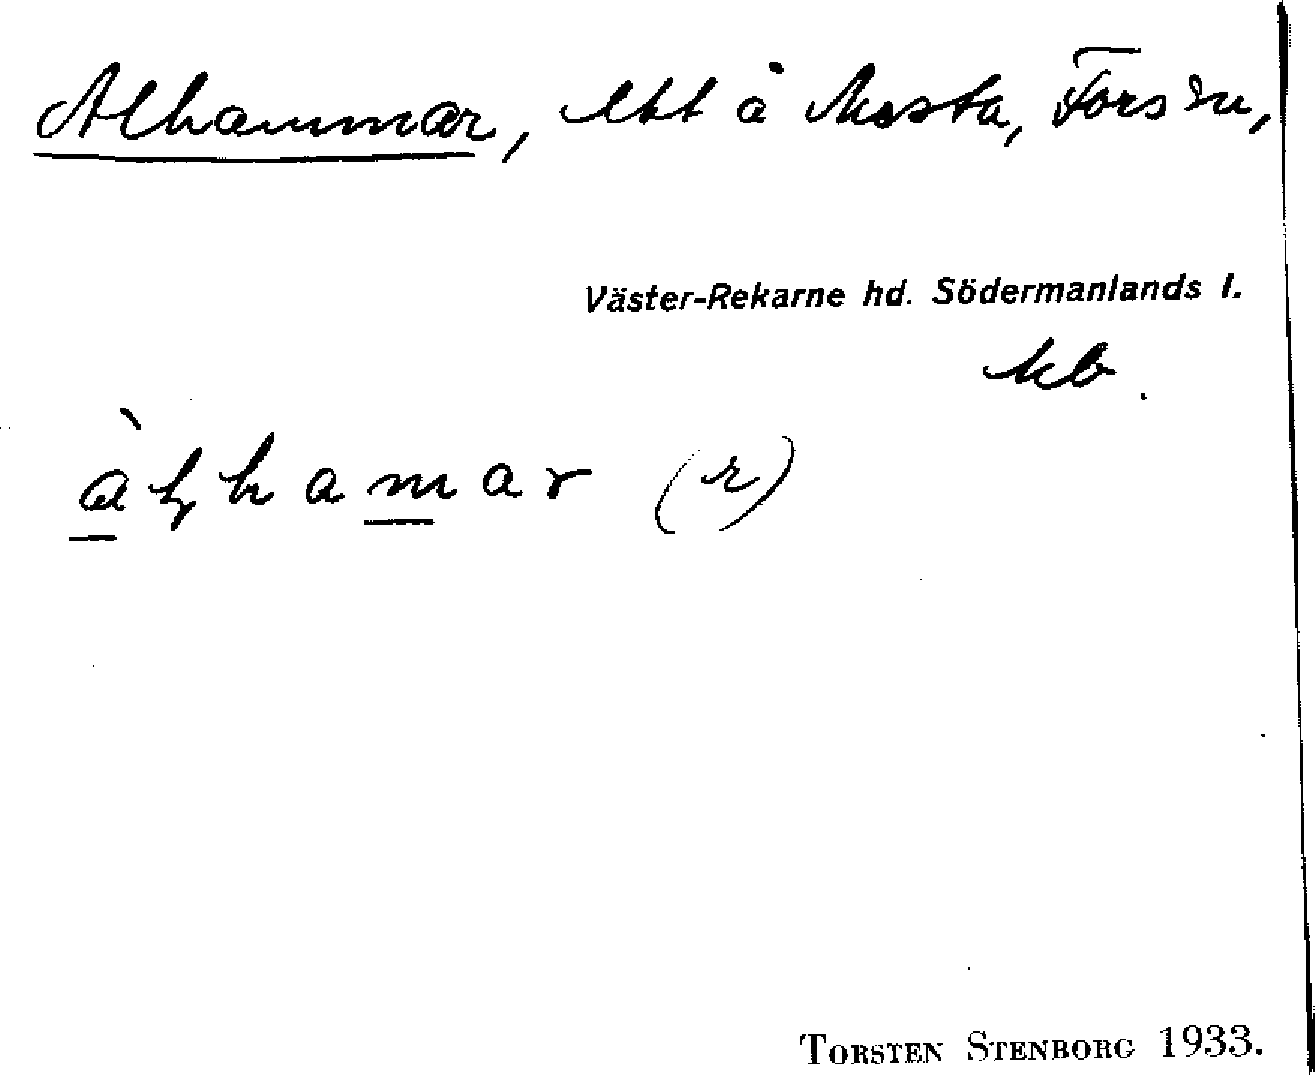 Alhammar, ltt å Mosta, Fors sn,
Väster-Rekarne hd. Södermanlands l.
àlhamar (r)
TORSTEN STENBORG 1933.